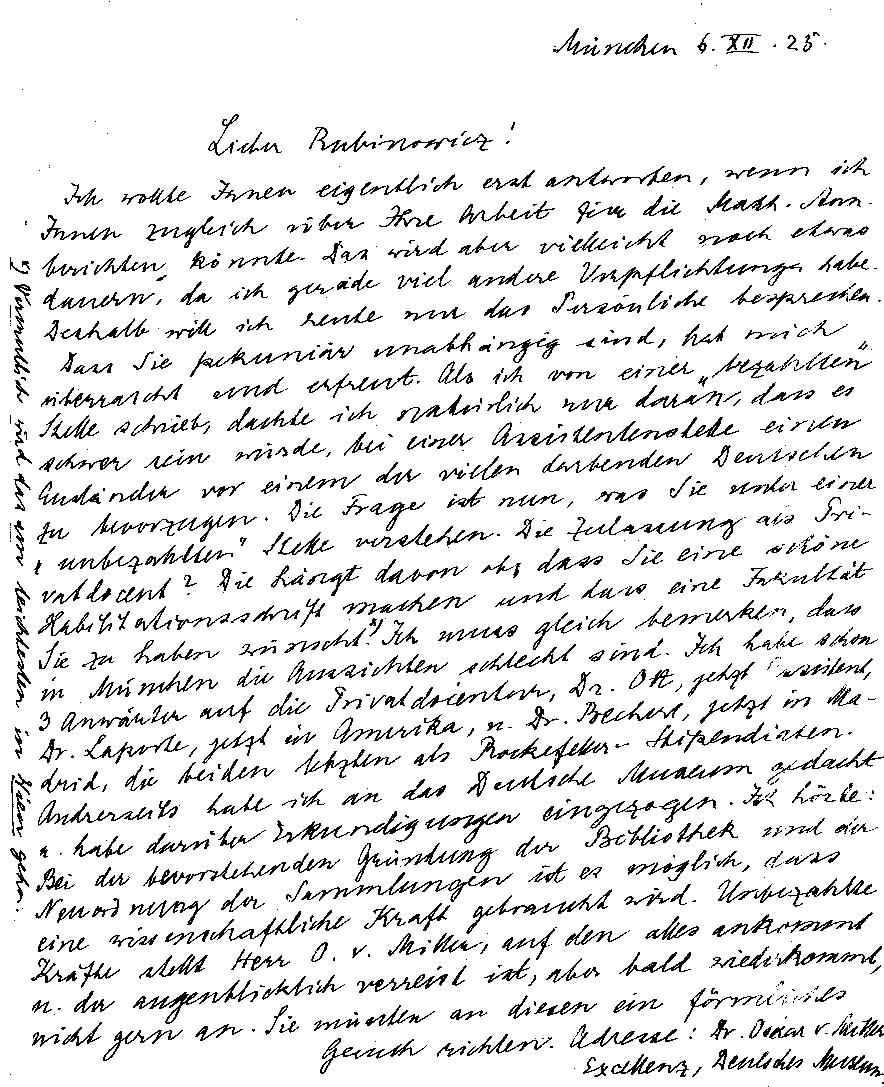 München 6. XII. 25.
Lieber Rubinowicz!
Ich wollte Ihnen eigentlich erst antworten, wenn ich
Ihnen zugleich über Ihre Arbeit für die Math. Ann.
berichten könnte. Das wird aber vielleicht noch etwas
dauern, da ich gerade viel andere Verpflichtungen habe.
Deshalb will ich heute nur das Persönliche besprechen.
Dass Sie pekuniär unabhängig sind, hat mich
überrascht und erfreut. Als ich von einer „bezahlten"
Stelle schrieb, dachte ich natürlich nur daran, dass es
schwer sein würde, bei einer Assistentenstelle einen
Ausländer vor einem der vielen darbenden Deutschen
zu bevorzugen. Die Frage ist nun, was Sie unter einer
„unbezahlten" Stelle verstehen. Die Zulassung als Pri-
vatdocent? Die hängt davon ab, dass Sie eine schöne
Habilitationsschrift machen und dass eine Fakultät
Sie zu haben wünscht.*) Ich muss gleich bemerken, dass
in München die Aussichten schlecht sind. Ich habe schon
3 Anwärter auf die Privatdocentur, Dr. Ott, jetzt Assistent,
Dr. Laporte, jetzt in Amerika, u. Dr. Bechert, jetzt in Ma-
drid, die beiden letzten als Rockefeller-Stipendiaten.
Andrerseits habe ich an das Deutsche Museum gedacht
u. habe darüber Erkundigungen eingezogen. Ich hörte:
Bei der bevorstehenden Gründung der Bibliothek und der
Neuordnung der Sammlungen ist es möglich, dass
eine wissenschaftliche Kraft gebraucht wird. Unbezahlte
Kräfte stellt Herr O. v. Miller, auf den alles ankommt
u. der augenblicklich verreist ist, aber bald wiederkommt,
nicht gern an. Sie müssten an diesen ein förmliches
Gesuch richten. Adresse: Dr. Oscar v. Miller
Excellenz, Deutsches Museum
*) Vermutlich wird das am leichtesten in Wien gehn.